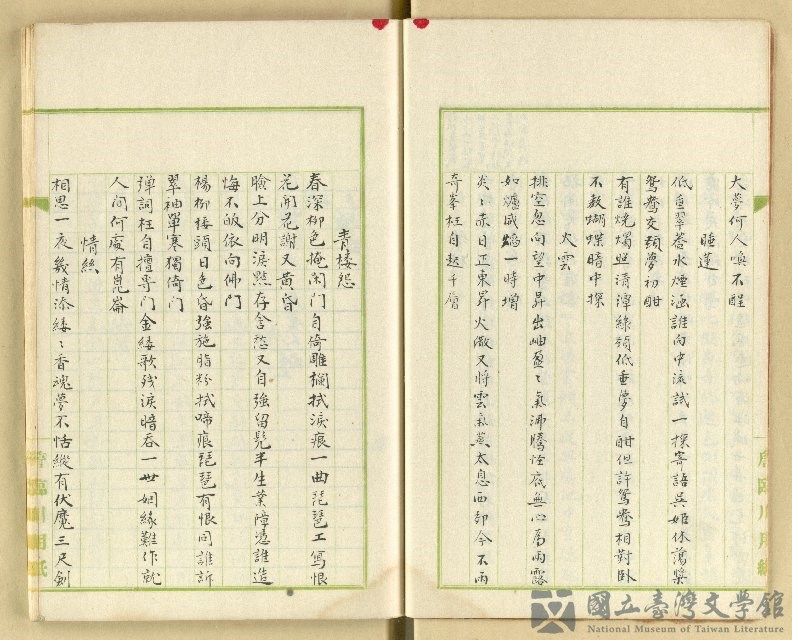 大夢何人喚不醒
睡蓮
低垂翠蓋水煙涵誰向中流試一探寄語吳姬休蕩槳
鴛鴦交頸夢初酣
有誰燒燭照清潭綠預低垂夢自酣但許鴛鴦相對臥
不教蝴蝶暗中探
火雲
排空忽向望中昇出岫盈〻氣沸騰怪底無心為雨露
如爐咸 一時增
炎〻赤日正東昇火傲又將雲氣蒸太息西郊今不雨
奇峯枉自起千層
青樓怨
春深柳色掩閑門自倚雕欄拭淚痕一曲琵琶工寫恨
花開花謝又黃昏
臉上分明淚點存含愁又自強留髠半生業障憑誰造
悔不皈依向佛門
楊柳梅頭日色昏強施脂粉拭啼痕琵琶有恨同誰訴
翠袖單寒獨倚門
彈詞枉自擅專門金縷歌殘淚暗吞一世姻緣難作就
人間何處有崑崙
情絲
相思一夜幾情添縷〻香魂夢不恬縱有伏魔三尺劍
唐臨川用紙
國立臺灣文學館
National Museum of Taiwan Literature